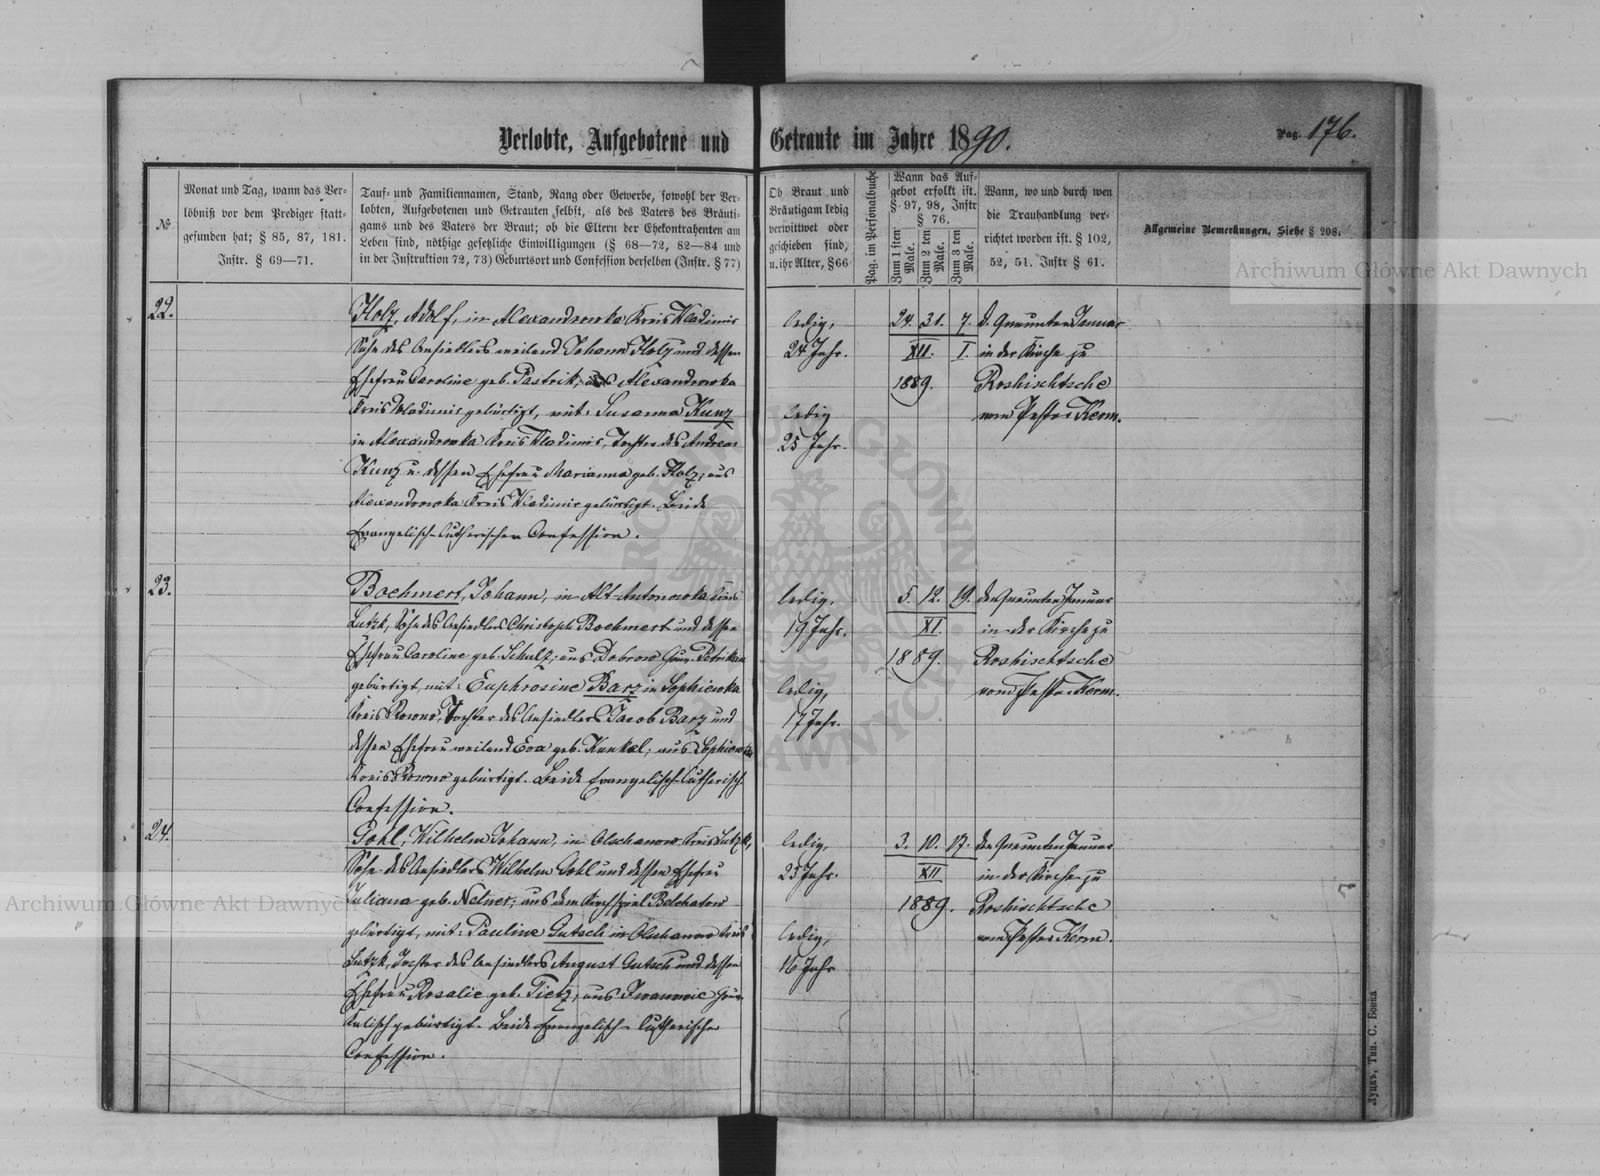 Verlobte, Aufgebotene und Getraute im Jahre 1890. Pag. 176.
№
Monat und Tag, wann das Ver-
löbniß vor dem Prediger statt-
gefunden hat; § 85, 87, 181.
Instr. § 69—71.
Tauf- und Familiennamen, Stand, Rang oder Gewerbe, sowohl der Ver-
lobten, Aufgebotenen und Getrauten selbst, als des Vaters des Bräuti-
gams und des Vaters der Braut; ob die Eltern der Ehekontrahenten am
Leben sind, nöthige gesetzliche Einwilligungen (§ 68—72, 82—84 und
in der Instruktion 72, 73) Geburtsort und Confession derselben (Instr. § 77)
Ob Braut und
Bräutigam ledig
verwittwet oder
geschieden sind,
u. ihr Alter, § 66
Pag. im Personalbuche
Wann das Auf-
gebot erfolgt ist.
§ 97, 98, Instr
§ 76.
Zum 1 sten Male.
Zum 2 ten Male.
Zum 3 ten Male.
Wann, wo und durch wen
die Trauhandlung ver-
richtet worden ist. § 102,
52, 51. Instr § 61.
Allgemeine Bemerkungen. Siehe § 208.
22.
Holz, Adolf, in Alexandrowka Kreis Wladimir
Sohn des Ansiedlers weiland Johann Holz und dessen
Ehefrau Caroline geb. Pastrik, aus Alexandrowka
Kreis Wladimir gebürtigt, mit: Susanna Kunz
in Alexandrowka Kreis Wladimir, Tochter des Andreas
Kunz u. dessen Ehefrau Marianna geb. Holz, aus
Alexandrowka Kreis Wladimir gebürtigt. Beide
Evangelisch-Lutherischer Confession.
ledig,
24 Jahr.
ledig
25 Jahr.
24. 31. 7.
XII. I.
1889.
d. Neunten Januar
in der Kirche zu
Roshischtsche
vom Pastor Kerm.
23.
Boehmert, Johann, in Alt-Antonowka Kreis
Lutzk, Sohn des Ansiedlers Christoph Boehmert und dessen
Ehefrau Caroline geb. Schulz, aus Dobrow Gouv. Petrikau
gebürtigt, mit: Euphrosine Barz in Sophiewka
Kreis Rowno, Tochter des Ansiedlers Jacob Barz und
dessen Ehefrau weiland Eva geb. Kunkel, aus Sophiowka
Kreis Rowno gebürtigt. Beide Evangelisch-Lutherisch
Confession.
ledig,
19 Jahr.
ledig,
17 Jahr.
5. 12. 19.
XI.
1889.
den Neunten Januar
in der Kirche zu
Roshischtsche
vom Pastor Kerm.
24.
Gohl, Wilhelm Johann, in Olschanow Kreis Lutzk,
Sohn des Ansiedlers Wilhelm Gohl und dessen Ehefrau
Juliana geb. Nelner, aus dem Kirchspiel Belchatow
gebürtigt, mit: Pauline Gutsch in Olschanow Kreis
Lutzk, Tochter des Ansiedlers August Gutsch und dessen
Ehefrau Rosalie geb. Tietz, aus Iwanowic Gouv.
Kalisch gebürtigt. Beide Evangelisch-Lutherische
Confession.
ledig,
23 Jahr.
ledig,
16 Jahr
3. 10. 17.
XII
1889.
den Neunten Januar
in der Kirche zu
Roshischtsche
vom Pastor Kerm.
Луцкъ, Тип. С. Бонка
Archiwum Główne Akt Dawnych
Archiwum Główne Akt Dawnych